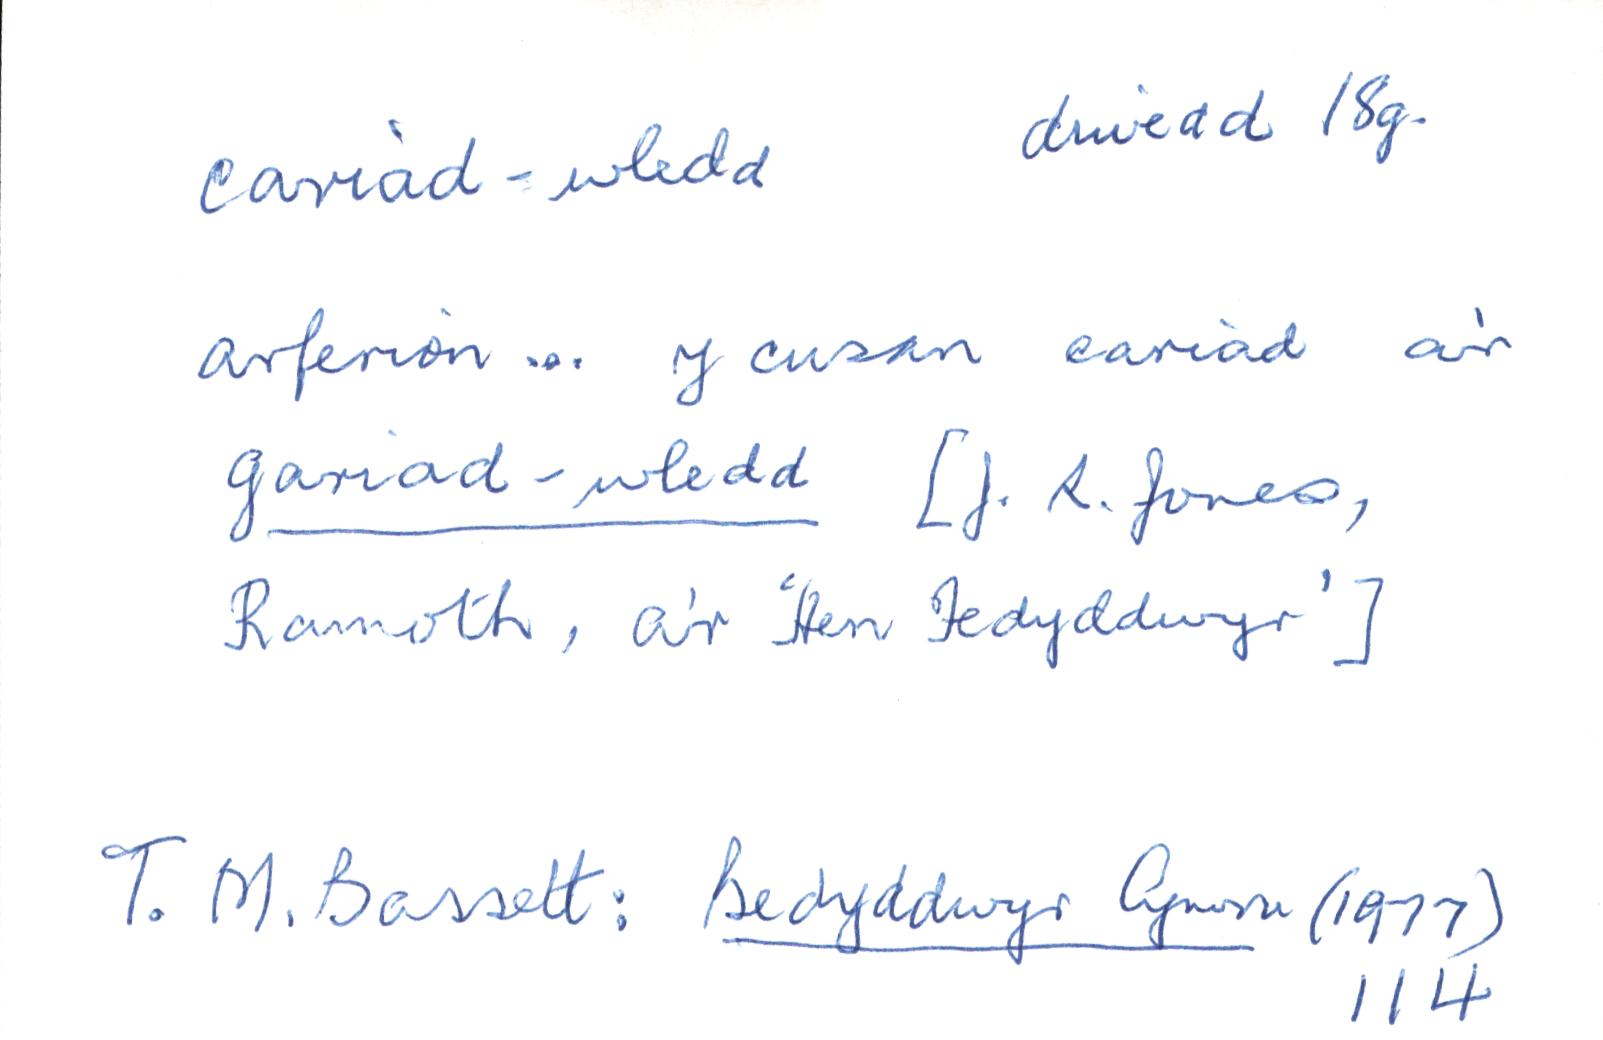 cariad-wledd
diwedd 18g.
arferion ... y cusan cariad a'r
gariad-wledd [J. R. Jones,
Ramoth, a'r 'Hen Fedyddwyr']
T. M. Bassett: Bedyddwyr Cymru (1977)
114